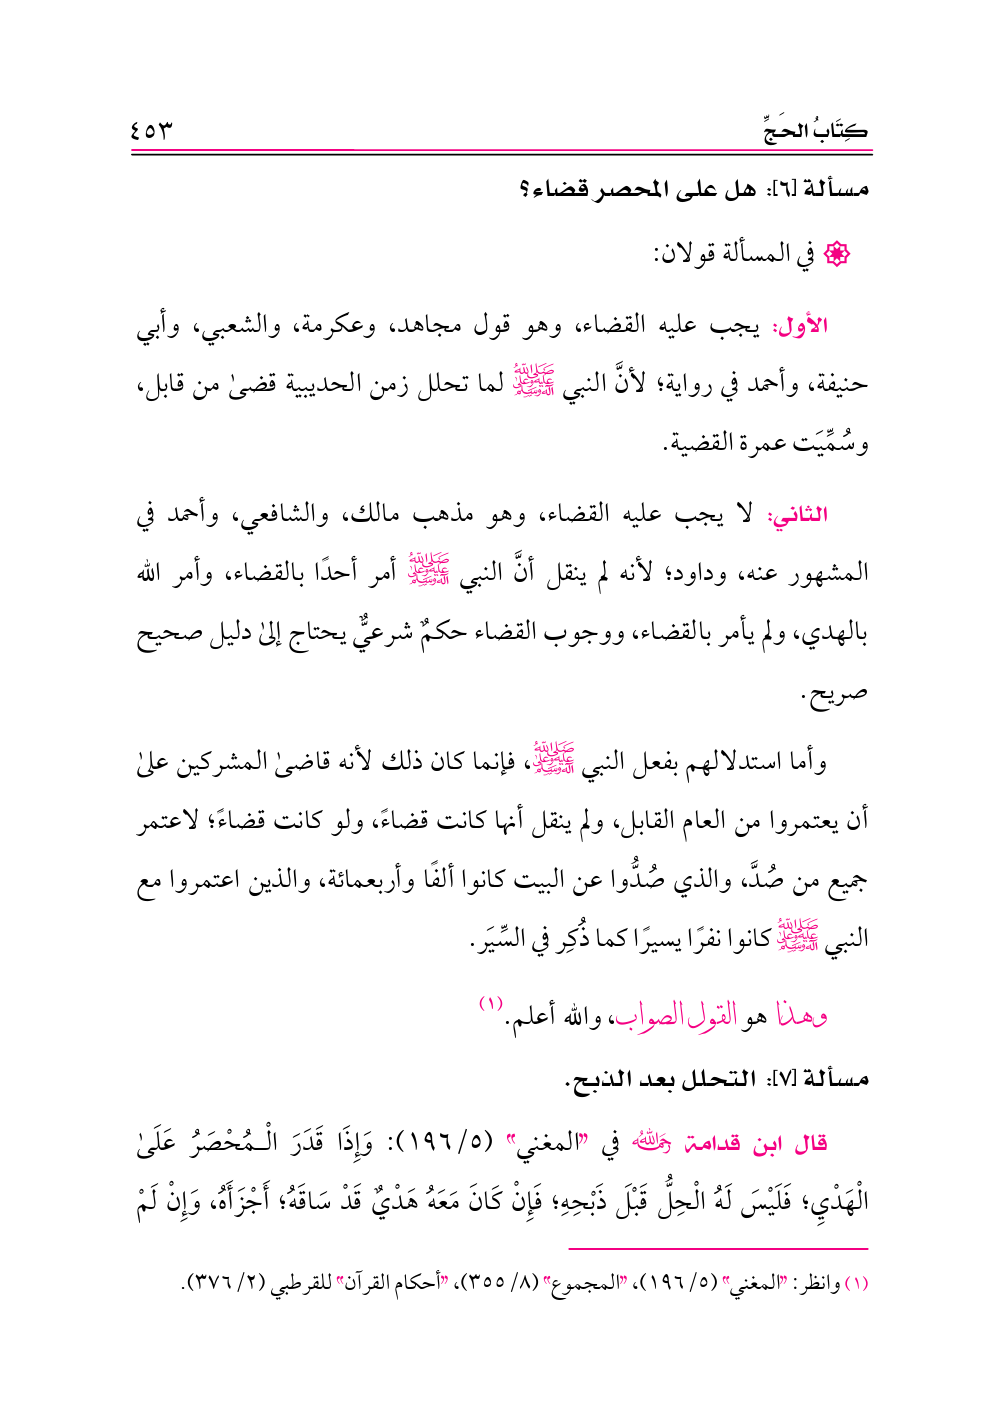 كِتَابُ الحَجِّ ٤٥٣
مسألة [٦]: هل على المحصر قضاء؟
في المسألة قولان:
الأول: يجب عليه القضاء، وهو قول مجاهد، وعكرمة، والشعبي، وأبي
حنيفة، وأحمد في رواية؛ لأنَّ النبي ﷺ لما تحلل زمن الحديبية قضىٰ من قابل،
وسُمِّيَت عمرة القضية.
الثاني: لا يجب عليه القضاء، وهو مذهب مالك، والشافعي، وأحمد في
المشهور عنه، وداود؛ لأنه لم ينقل أنَّ النبي ﷺ أمر أحدًا بالقضاء، وأمر الله
بالهدي، ولم يأمر بالقضاء، ووجوب القضاء حكمٌ شرعيٌّ يحتاج إلىٰ دليل صحيح
صريح.
وأما استدلالهم بفعل النبي ﷺ، فإنما كان ذلك لأنه قاضىٰ المشركين علىٰ
أن يعتمروا من العام القابل، ولم ينقل أنها كانت قضاءً، ولو كانت قضاءً؛ لاعتمر
جميع من صُدَّ، والذي صُدُّوا عن البيت كانوا ألفًا وأربعمائة، والذين اعتمروا مع
النبي ﷺ كانوا نفرًا يسيرًا كما ذُكِر في السِّيَر.
وهذا هو القول الصواب، والله أعلم.(١)
مسألة [٧]: التحلل بعد الذبح.
قال ابن قدامة رحمه الله في "المغني" (٥/ ١٩٦): وَإِذَا قَدَرَ الْـمُحْصَرُ عَلَىٰ
الْهَدْيِ؛ فَلَيْسَ لَهُ الْحِلُّ قَبْلَ ذَبْحِهِ؛ فَإِنْ كَانَ مَعَهُ هَدْيٌ قَدْ سَاقَهُ؛ أَجْزَأَهُ، وَإِنْ لَمْ
(١) وانظر: "المغني" (٥/ ١٩٦)، "المجموع" (٨/ ٣٥٥)، "أحكام القرآن" للقرطبي (٢/ ٣٧٦).